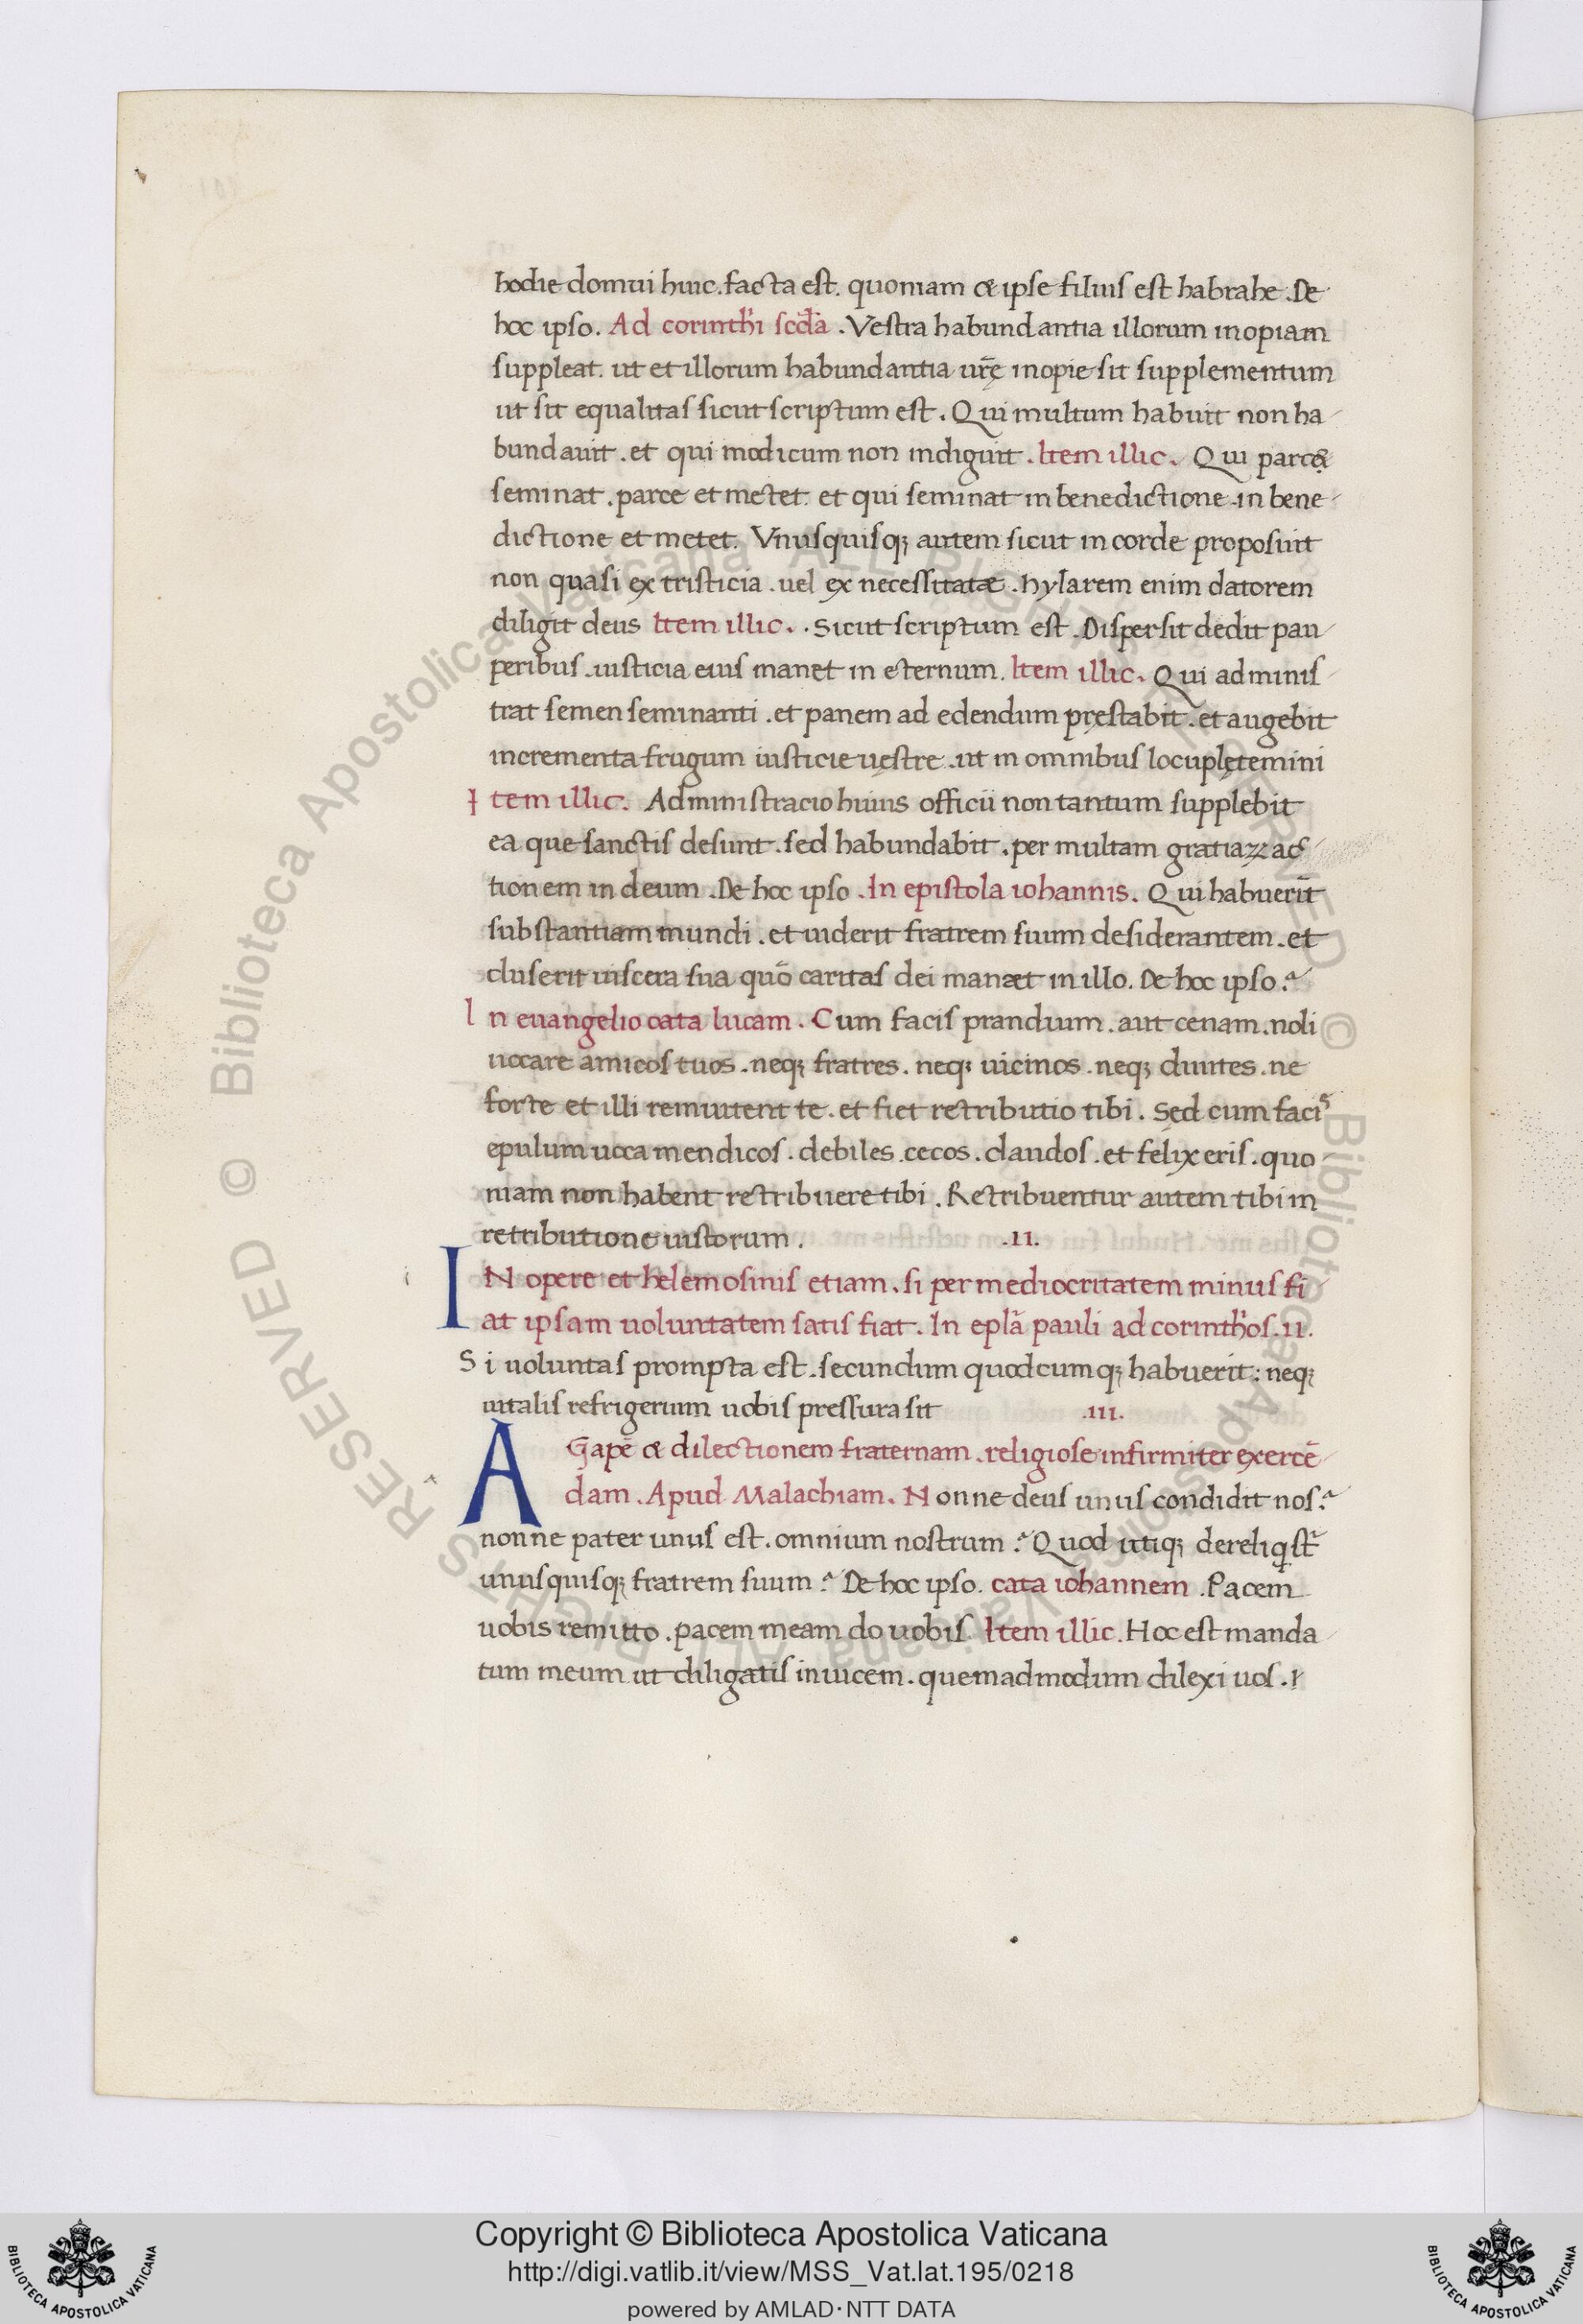 hodie domui huic. facta est. quoniam & ipse filius est habrahe. De
hoc ipso. Ad corinth̄i scd̄a. Vestra habundantia illorum inopiam
suppleat. ut et illorum habundantia ur̄ę inopie sit supplementum
ut sit equalitas sicut scriptum est. Qui multum habuit non ha
bundauit. et qui modicum non indiguit. Item illic. Qui parce
seminat. parce et metet. et qui seminat in benedictione. in bene
dictione et metet. Vnusquisq; autem sicut in corde proposuit
non quasi ex tristicia. uel ex necessitatæ. hylarem enim datorem
diligit deus Item illic.. Sicut scriptum est. Dispersit dedit pau
peribus. iusticia eius manet in eternum. Item illic. Qui adminis
trat semen seminanti. et panem ad edendum pręstabit. et augebit
incrementa frugum iusticie uęstre. ut in omnibus locuplętemini
Item illic. Administracio huius officii non tantum supplebit
ea que sanctis desunt. sed habundabit. per multam gratiaꝝ ac
tionem in deum. De hoc ipso. In epistola iohannis. Qui habuerit̄
substantiam mundi. et uiderit fratrem suum desiderantem. et
cluserit uiscera sua quō caritas dei manæt in illo. De hoc ipso?
In euangelio cata lucam. Cum facis prandium. aut cenam. noli
uocare amicos tuos. neq; fratres. neq; uicinos. neq; diuites. ne
forte et illi remuitent te. et fiet retributio tibi. Sed cum facis
epulum uoca mendicos. debiles. cecos. claudos. et felix eris. quo
niam non habent retribuere tibi. Retribuentur autem tibi in
retributione iustorum. .II.
IN opere et helemosinis etiam. si per mediocritatem minus fi
at ipsam uoluntatem satis fiat. In epl̄a pauli ad corinth̄os. II.
Si uoluntas prompta est. secundum quodcumq; habuerit: neq;
uitalis refrigerium uobis pressura sit .III.
AGapē & dilectionem fraternam. religiose infirmiter exercē
dam. Apud Malachiam. Nonne deus unus condidit nos?
nonne pater unus est. omnium nostrum? Quod utiq; dereliqst̄
unusquisq; fratrem suum? De hoc ipso. cata iohannem. Pacem
uobis remitto. pacem meam do uobis. Item illic. Hoc est manda
tum meum ut diligatis inuicem. quemadmodum dilexi uos. I
Copyright © Biblioteca Apostolica Vaticana
http://digi.vatlib.it/view/MSS_Vat.lat.195/0218
powered by AMLAD·NTT DATA
BIBLIOTECA APOSTOLICA VATICANA
BIBLIOTECA APOSTOLICA VATICANA